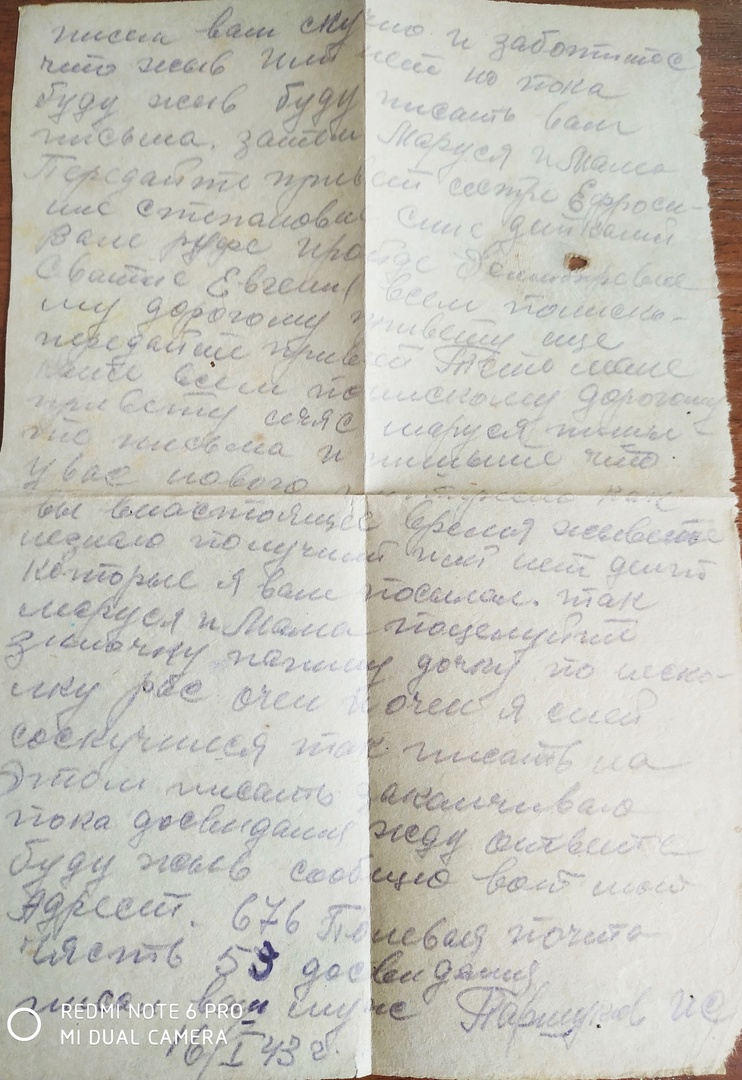 писем вам скучно и заботитес
что жыв или нет но пока
буду жыв буду писать вам
письма. затем Маруся и Мама
Передайте привет сестре Ефроси-
ние степановне
Вале
Сватие Евгения всем пониско-
му дорогому привету еще
передайте привет Тесто
всем понискому дорогому
привету счяс маруся пиши-
те письма и пишыте что
у вас нового как
вы внастоящее время живете
незнаю получили или нет
которые я вам посылал. так
маруся и Мама поцелуйте
Зиночку нашу дочку по неско-
лку рас очен и очен я сней
соскучился так писать на
Этом писать заканчиваю
пока досвидания жду ответа
буду жыв сообщю вот мой
Адрест. 676 Полевая почта
Чясть 53 досвидания
писал ваш муж Паршуков ИС
16/I 43 г.
REDMI NOTE 6 PRO
MI DUAL CAMERA